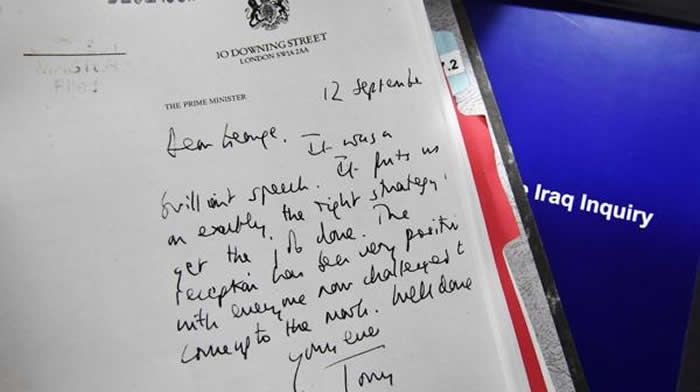 10 DOWNING STREET
LONDON SW1A 2AA
THE PRIME MINISTER
12 September
Dear George,
It was a
brilliant speech. It puts us
on exactly the right strategy
get the job done. The
reception has been very positive
with everyone now challenged t
come up to the mark. Well done
Yours ever
Tony
7.2
Iraq Inquiry